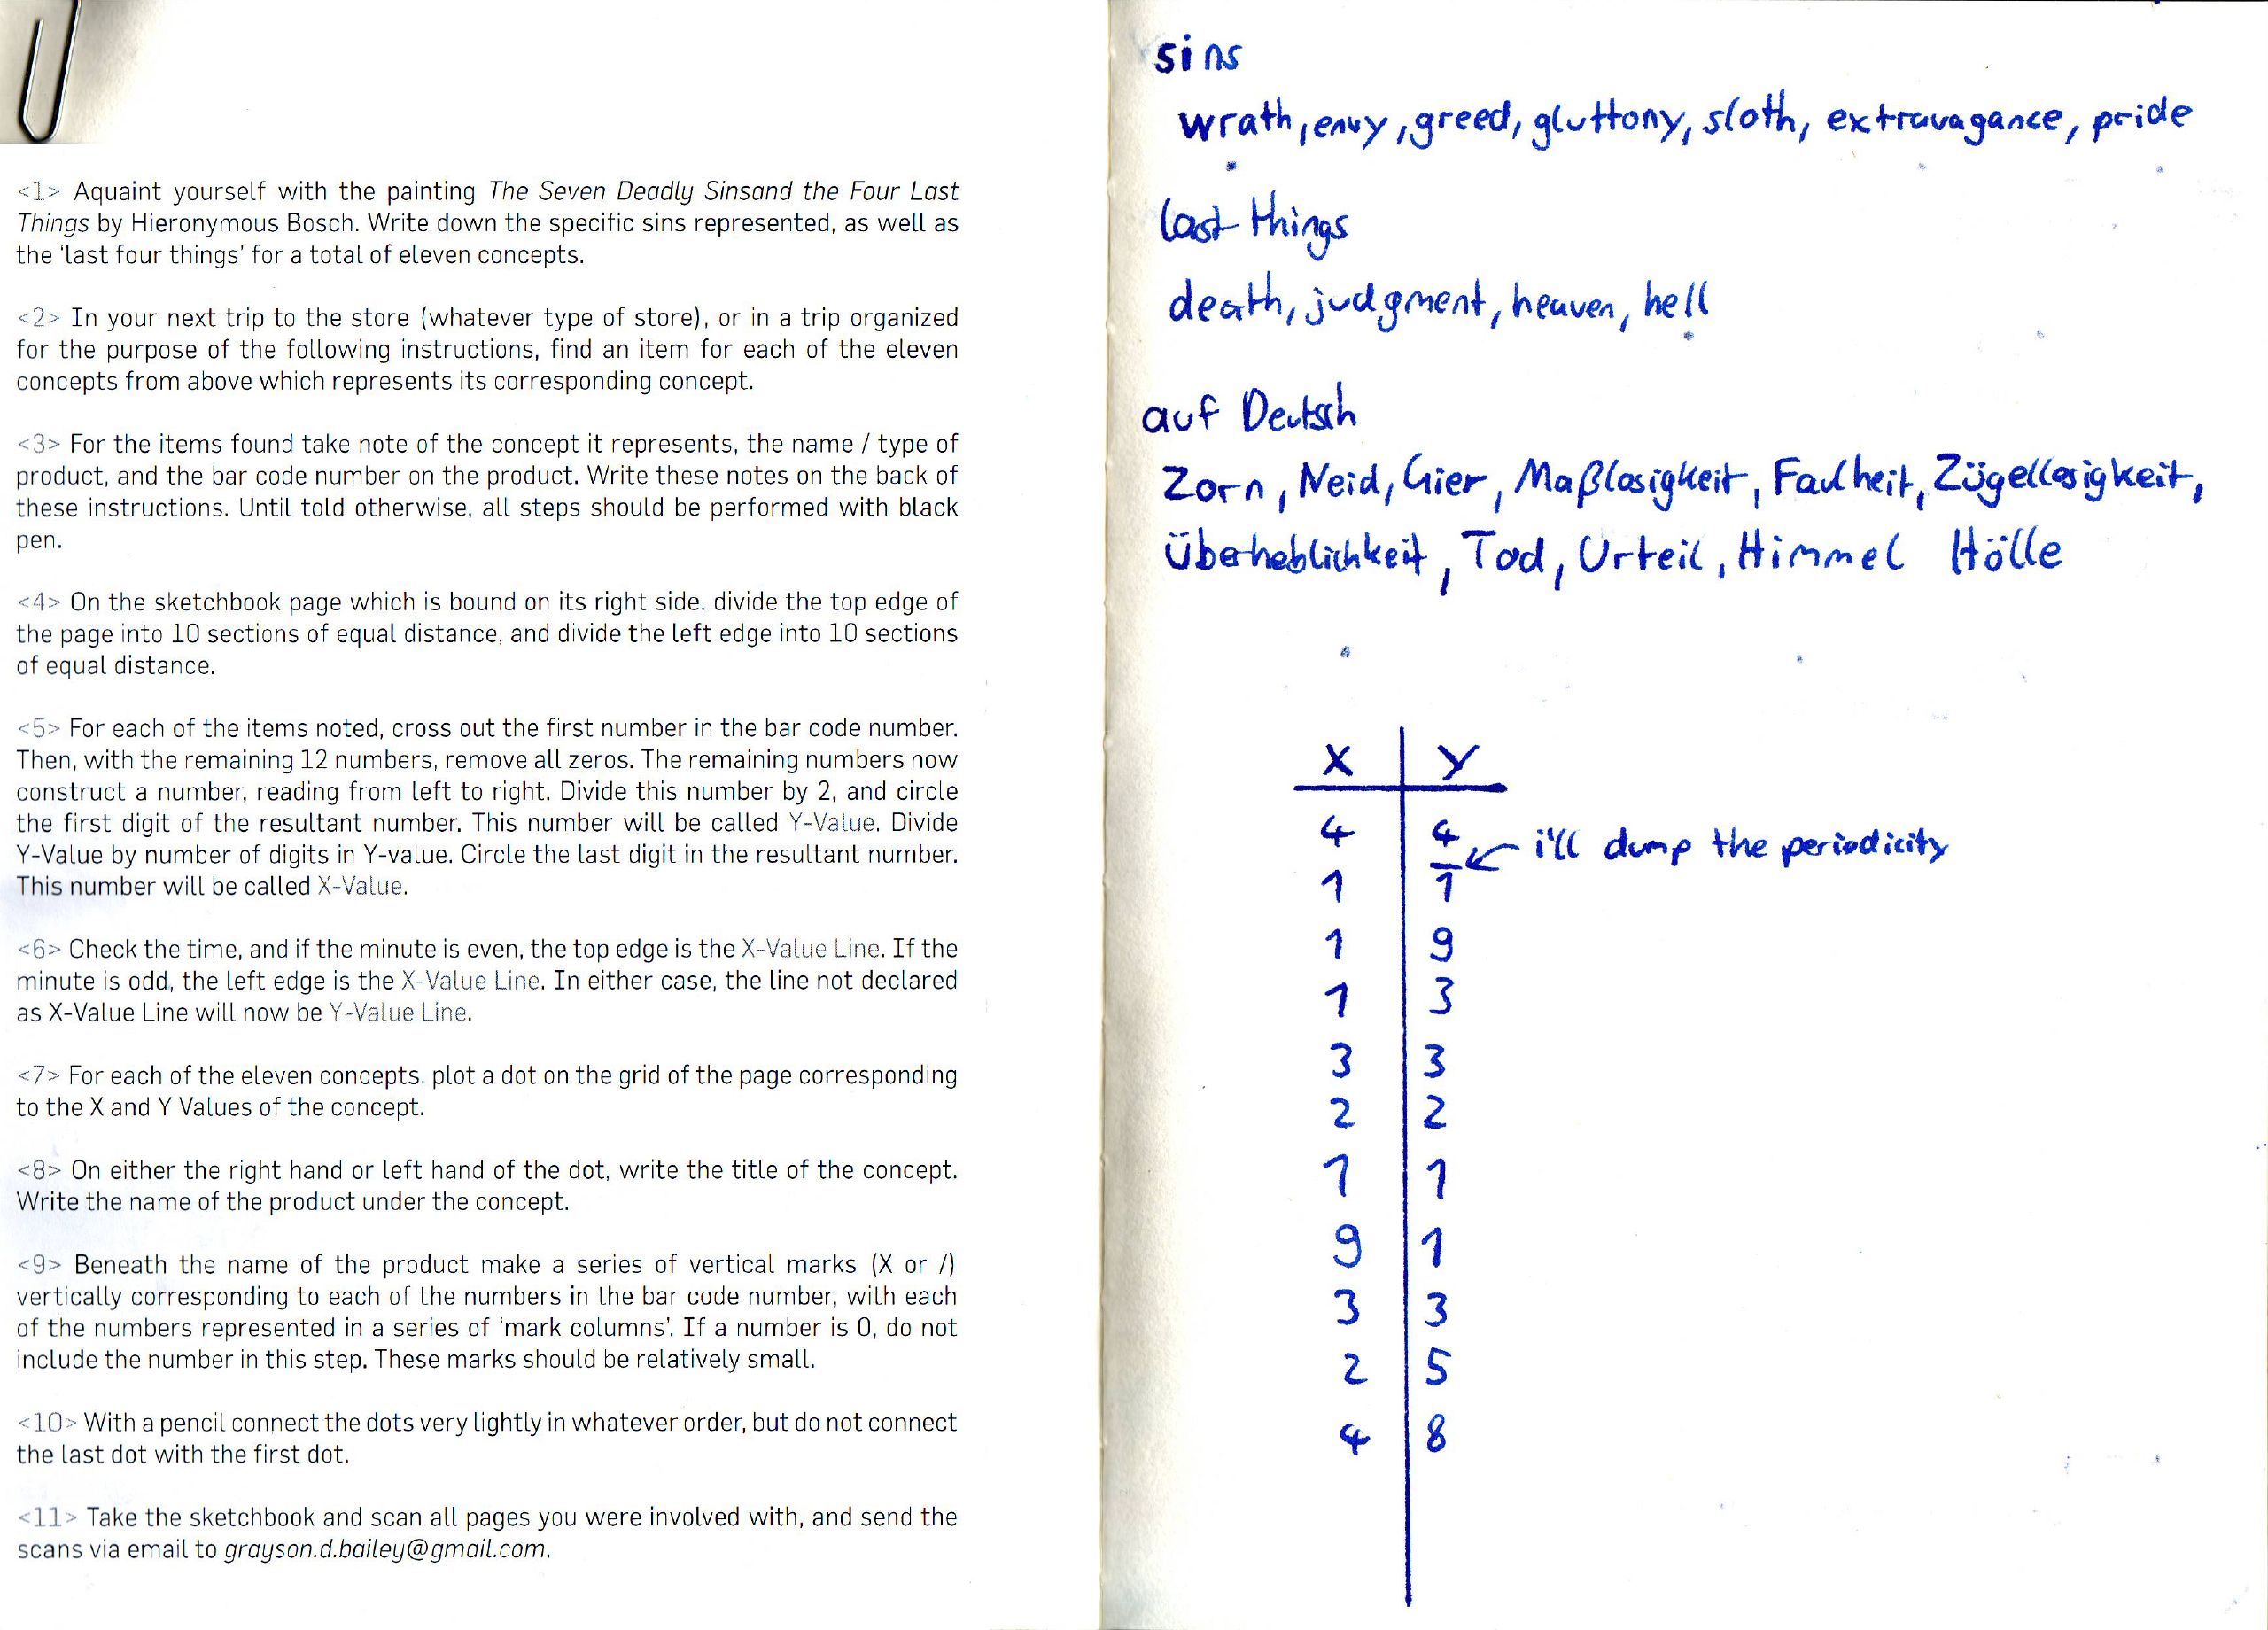 <1> Aquaint yourself with the painting The Seven Deadly Sinsand the Four Last
Things by Hieronymous Bosch. Write down the specific sins represented, as well as
the 'last four things' for a total of eleven concepts.
<2> In your next trip to the store (whatever type of store), or in a trip organized
for the purpose of the following instructions, find an item for each of the eleven
concepts from above which represents its corresponding concept.
<3> For the items found take note of the concept it represents, the name / type of
product, and the bar code number on the product. Write these notes on the back of
these instructions. Until told otherwise, all steps should be performed with black
pen.
<4> On the sketchbook page which is bound on its right side, divide the top edge of
the page into 10 sections of equal distance, and divide the left edge into 10 sections
of equal distance.
<5> For each of the items noted, cross out the first number in the bar code number.
Then, with the remaining 12 numbers, remove all zeros. The remaining numbers now
construct a number, reading from left to right. Divide this number by 2, and circle
the first digit of the resultant number. This number will be called Y-Value. Divide
Y-Value by number of digits in Y-value. Circle the last digit in the resultant number.
This number will be called X-Value.
<6> Check the time, and if the minute is even, the top edge is the X-Value Line. If the
minute is odd, the left edge is the X-Value Line. In either case, the line not declared
as X-Value Line will now be Y-Value Line.
<7> For each of the eleven concepts, plot a dot on the grid of the page corresponding
to the X and Y Values of the concept.
<8> On either the right hand or left hand of the dot, write the title of the concept.
Write the name of the product under the concept.
<9> Beneath the name of the product make a series of vertical marks (X or /)
vertically corresponding to each of the numbers in the bar code number, with each
of the numbers represented in a series of 'mark columns'. If a number is 0, do not
include the number in this step. These marks should be relatively small.
<10> With a pencil connect the dots very lightly in whatever order, but do not connect
the last dot with the first dot.
<11> Take the sketchbook and scan all pages you were involved with, and send the
scans via email to grayson.d.bailey@gmail.com.
sins
wrath, envy, greed, gluttony, sloth, extravagance, pride
last things
death, judgment, heaven, hell
auf Deutsch
Zorn, Neid, Gier, Maßlosigkeit, Faulheit, Zügellosigkeit,
Überheblichkeit, Tod, Urteil, Himmel Hölle
X Y
4 4 i'll dump the periodicity
1 1
1 9
1 3
3 3
2 2
1 1
9 1
3 3
2 5
4 8